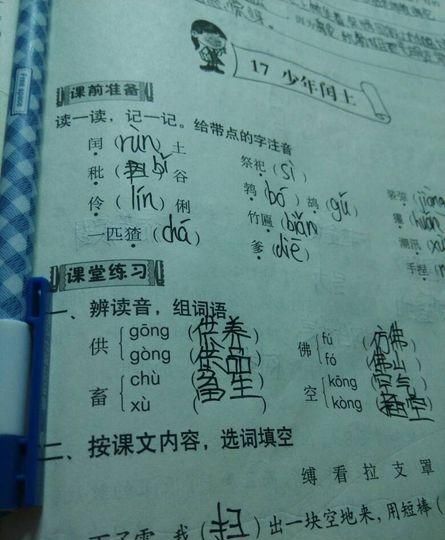 17 少年闰土
课前准备
读一读，记一记。给带点的字注音
闰（rùn）土 祭祀（sì）
秕（bǐ）谷 鹁（bó）鸪（gū） 装弶（jiàng
伶（lín）俐 竹匾（biǎn）
一匹猹（chá） 爹（diē） 潮汛（xù
课堂练习
一、辨读音，组词语
供 gōng（供养） 佛 fú（仿佛）
gòng（供品） fó（佛山）
畜 chù（畜生） 空 kōng（空气）
xù（ ） kòng（ 空）
二、按课文内容，选词填空
缚 看 拉 支 罩
下了雪，我（扫）出一块空地来，用短棒（